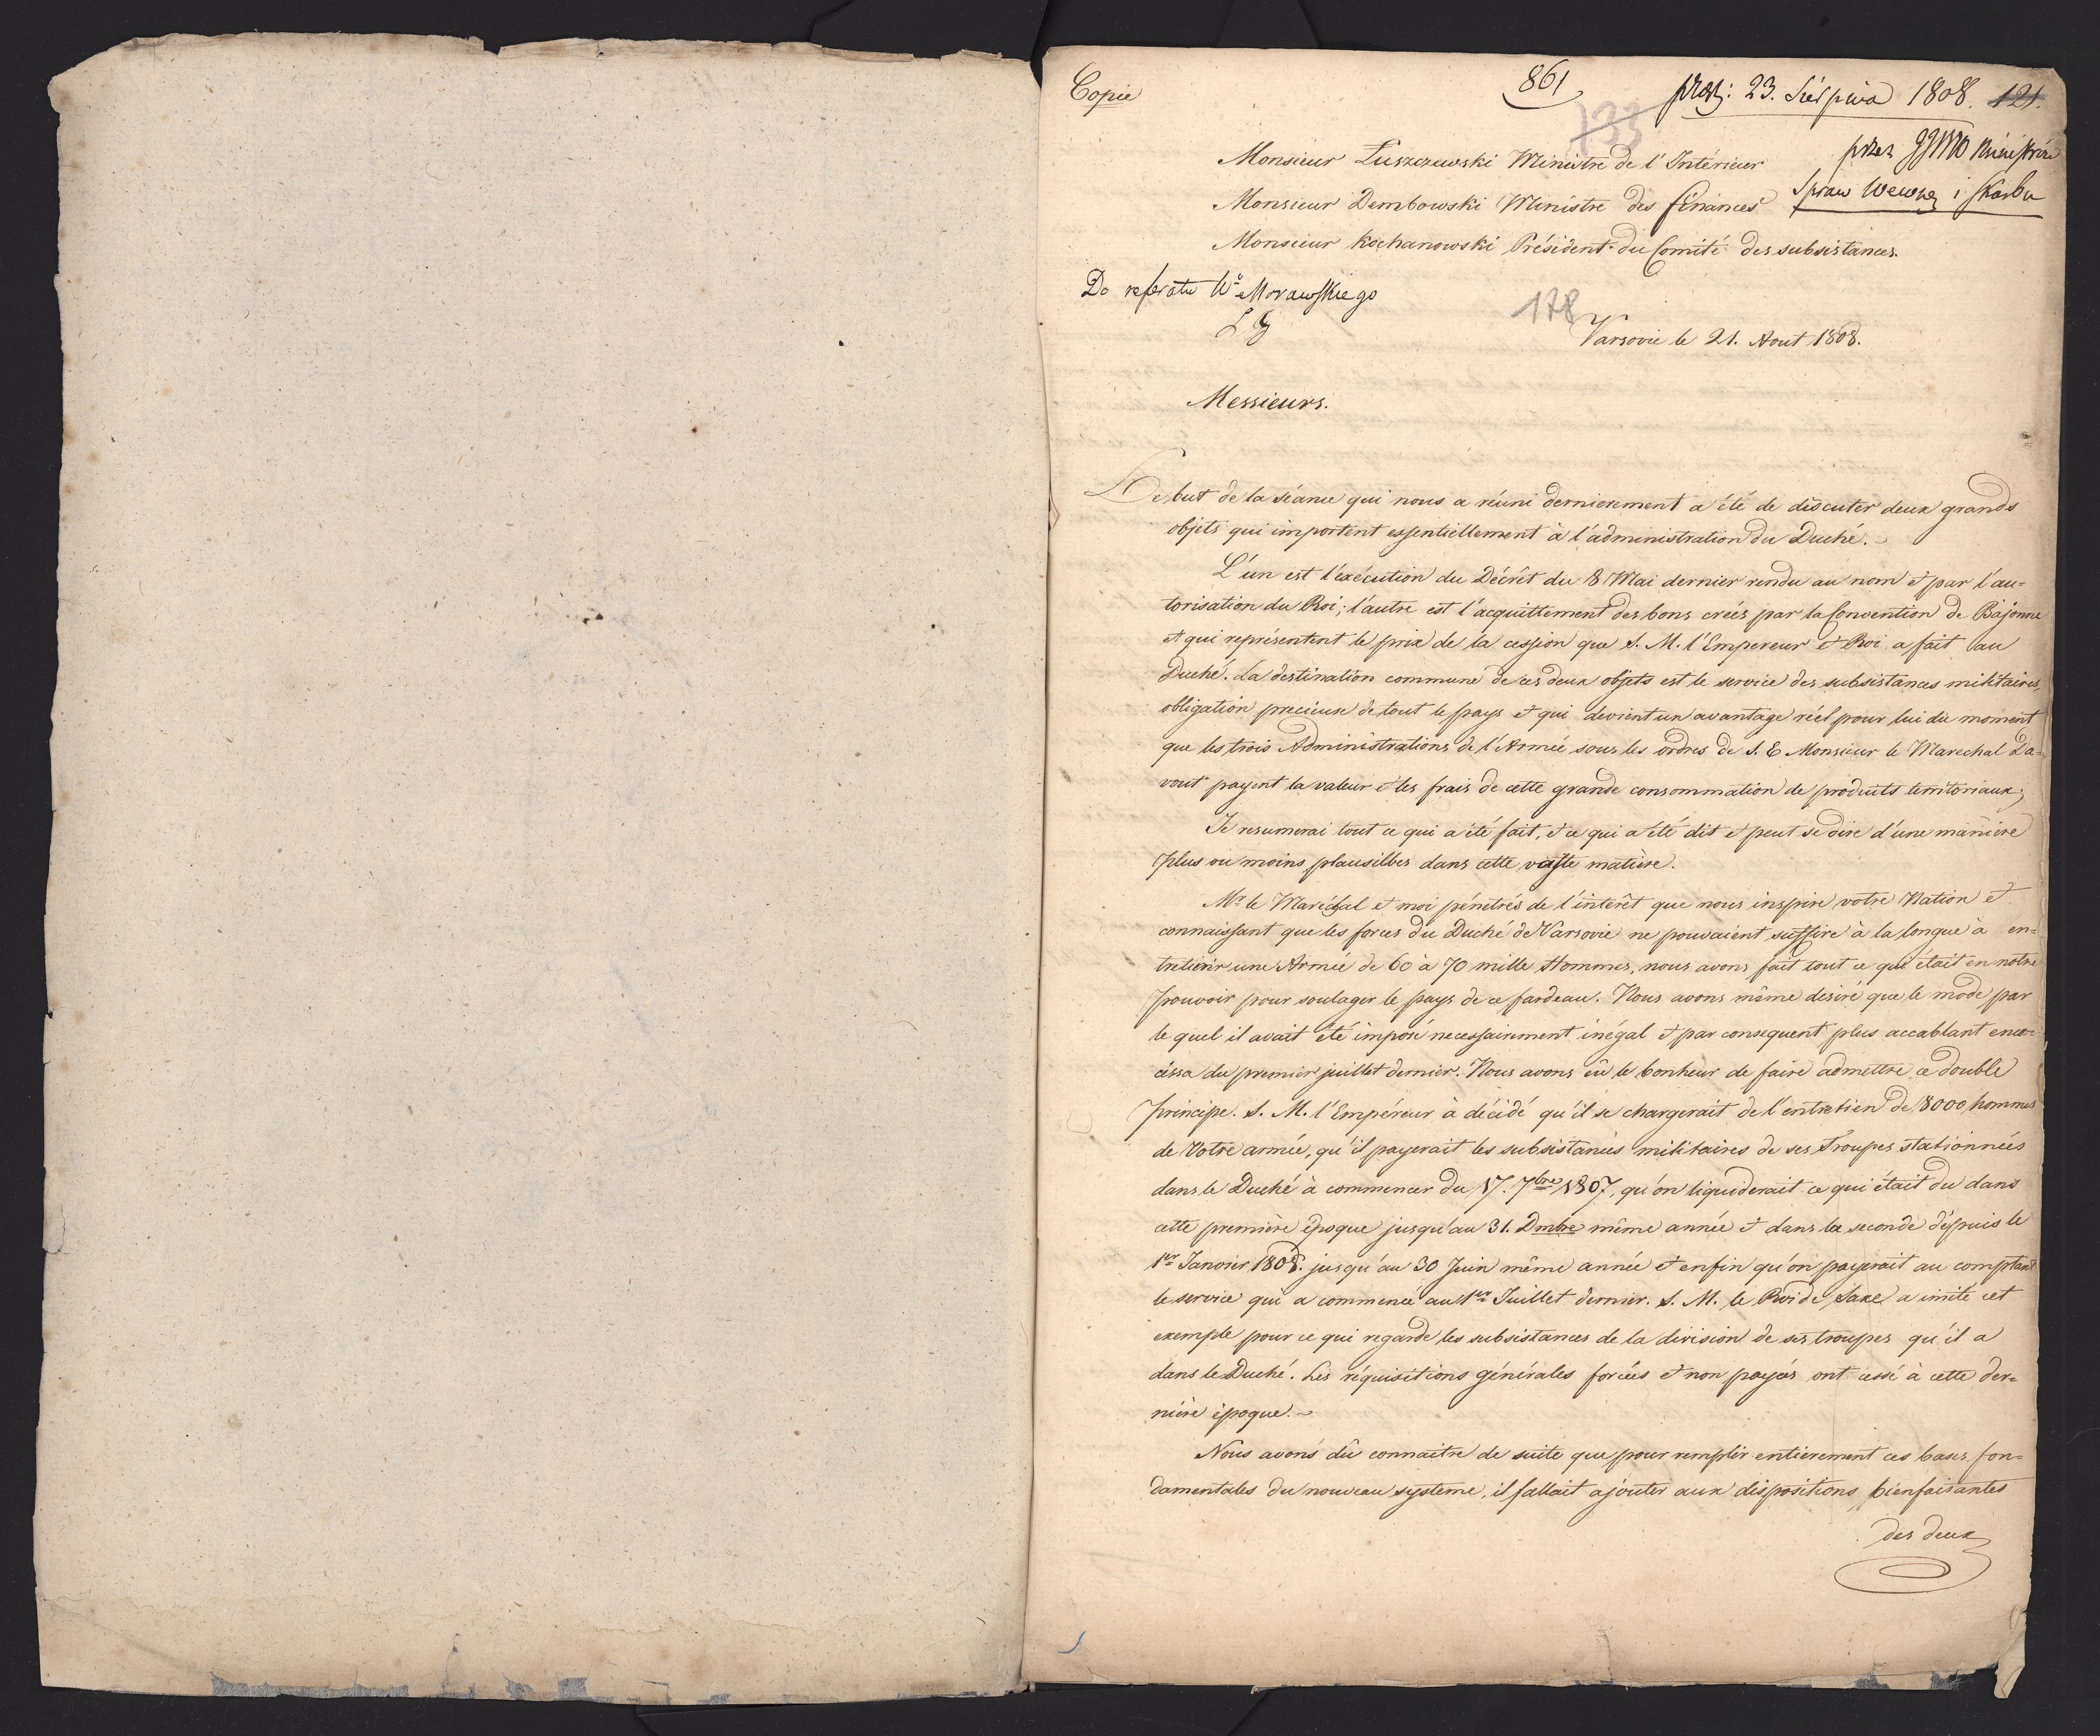 Copie
861
praes: 23. Sierpnia 1808. 121.
133
przez JJWW Ministrów
Spraw Wewnę i Skarbu
Monsieur Łuszczewski Ministre de l'Intérieur
Monsieur Dembowski Ministre des finances
Monsieur Kochanowski Président du Comité des subsistances.
Do referatu Wo Morawskiego
178
Varsovie le 21. Aout 1808.
Messieurs.
Le but de la séance qui nous a réuni dernierement a été de discuter deux grands
objets qui importent essentiellement à l'administration du Duché.
L'un est l'exécution du Décrêt du 8 Mai dernier rendu au nom et par l'au=
torisation du Roi; l'autre est l'acquittement des bons creés par la Convention de Bajonne
et qui représentent le prix de la cession que S. M. l'Empereur et Roi a fait au
Duché. La destination commune de ces deux objets est le service des subsistances militaires,
obligation precieuse de tout le pays et qui devient un avantage réel pour lui du moment
que les trois Administrations de l'Armée sous les ordres de S. E Monsieur le Marechal Da=
vout payent la valeur et les frais de cette grande consommation de produits territoriaux;
Je resumerai tout ce qui a été fait, et ce qui a été dit et peut se dire d'une maniere
plus ou moins plausilbes dans cette vaste matière.
Mr le Maréchal et moi pénétrés de l'interêt que nous inspire votre Nation et
connaissant que les forces du Duché de Varsovie ne pouvaient suffire à la longue à en=
tretienir une Armée de 60 à 70 mille Hommes, nous avons fait tout ce que était en notre
pouvoir pour soulager le pays de ce fardeau. Nous avons même desiré que le mode par
le quel il avait été imposé necessairement inégal et par consequent plus accablant encore
cessa du premier juillet dernier. Nous avons eû le bonheur de faire admettre ce double
principe. S. M. l'Empéreur à décidé qu'il se chargerait de l'entretien de 8000 hommes
de Votre armée, qu'il payerait les subsistances militaires de ses Troupes stationnées
dans le Duché à commencer du 17. 7bre 1807, qu'on liquiderait ce qui était du dans
cette première époque jusqu'au 31. Dmbre même année et dans la seconde dépuis le
1er Janvier 1808. jusqu'au 30 Juin même année et enfin qu'on payerait au comptant
le service qui a commencé au 1er Juillet dernier. S. M. le Roi de Saxe a imité cet
exemple pour ce qui regarde les subsistances de la division de ses troupes qu'il a
dans le Duché. Les réquisitions générales forcées et non payées ont cessé à cette der=
niere époque.
Nous avons dû connaitre de suite que pour remplir entierement ces bases fon=
damentales du nouveau systeme, il fallait ajouter aux dispositions bienfaisantes
des deux